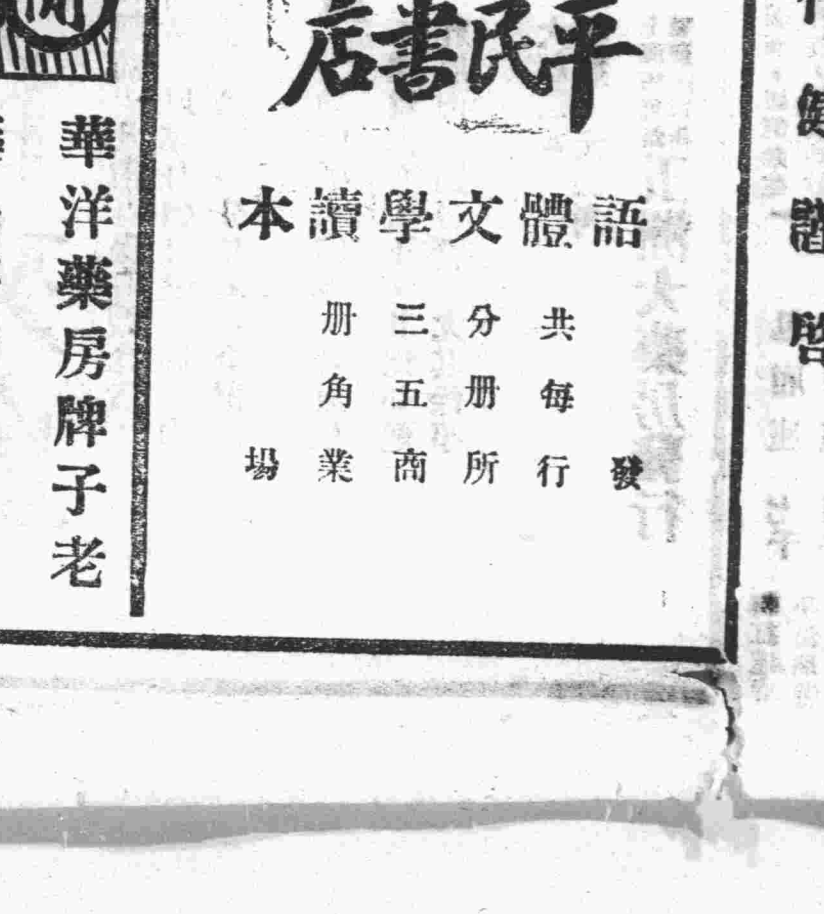 平民書店
語體文學讀本
共分三册
每册五角
發行所商業場
華洋藥房牌子老